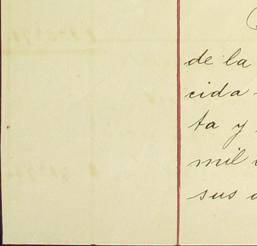 de la
cida
ta y
mil
sus